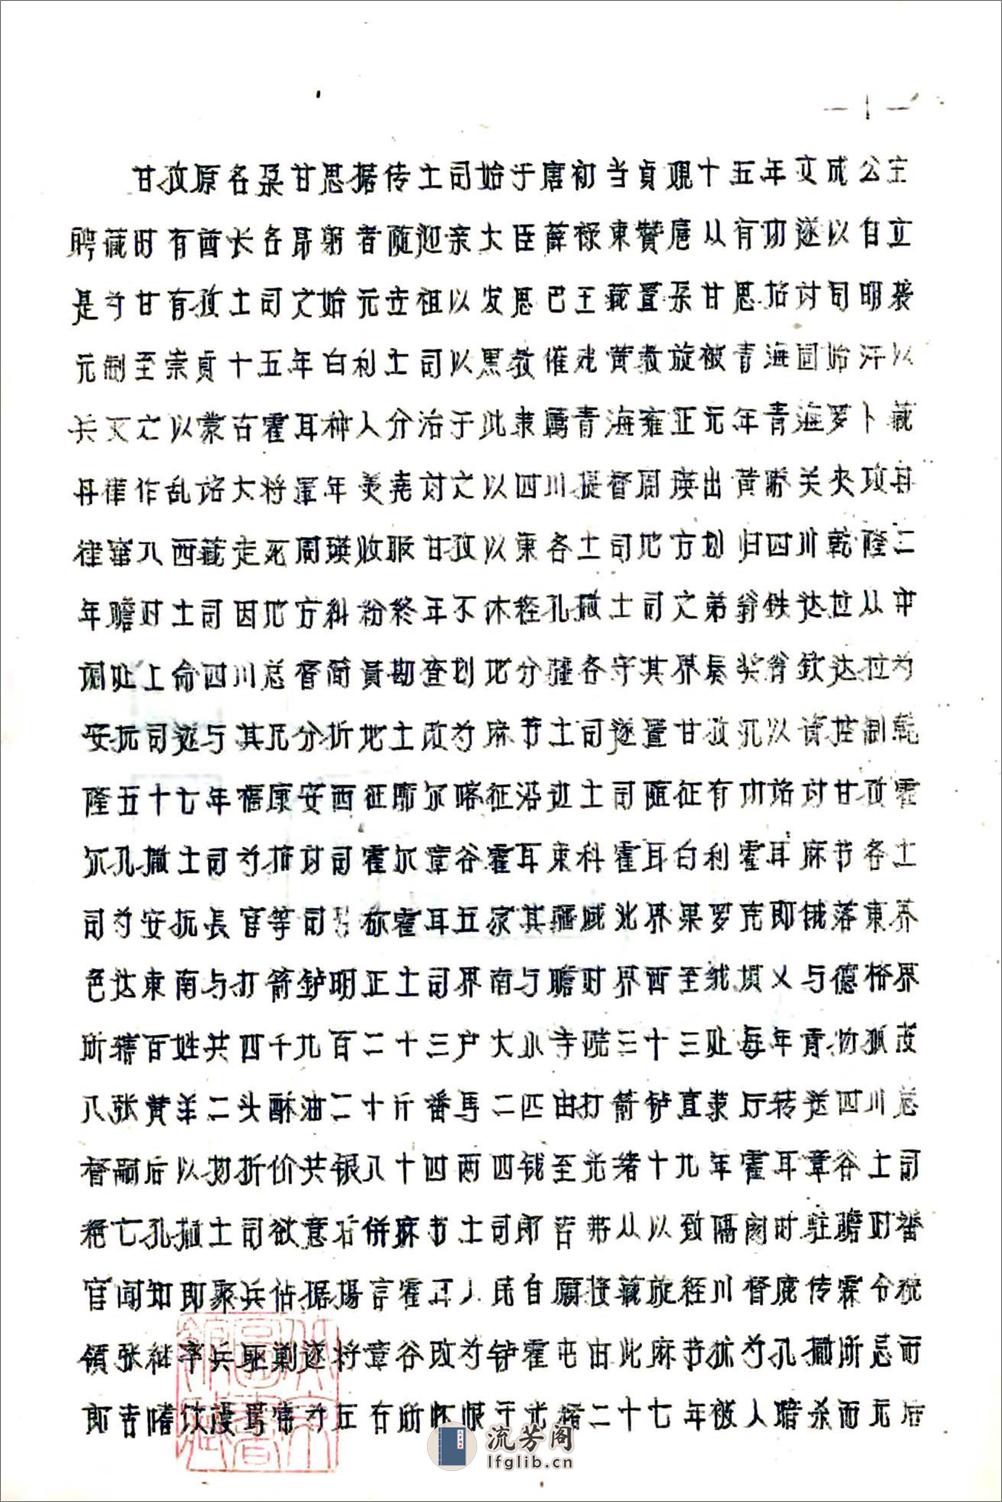 —1—
甘孜原名朶甘思据传土司始于唐初当貞观十五年文成公主
聘藏时有酋长名昂躬者随迎亲大臣薛禄東赞唐从有功遂以自立
是为甘有孜土司之始元世祖以发思巴王藏置朶甘思招讨司明袭
元制至崇貞十五年白利土司以黑教催戏黄教旋被青海固始汗以
兵灭之以蒙古霍耳种人分治于此隶属青海雍正元年青海罗卜藏
丹律作乱诏大将軍年羹尭讨之以四川提督周瑛出黄勝关夹攻丹
律窜入西藏走死周瑛收服甘孜以東各土司地方划归四川乾隆二
年瞻对土司因地方糾纷終年不休經孔撒土司之弟翁钦达拉从中
调处上命四川总督简員勘查划地分疆各守其界奏奖翁钦达拉为
安抚司遂与其兄分折地土改为麻节土司遂置甘孜汛以资控制乾
隆五十七年福康安西征廓尔喀征沿边土司随征有功诏封甘孜霍
尔孔撒土司为招讨司霍尔章谷霍耳束科霍耳白利霍耳麻节各土
司为安抚長官等司 称霍耳五家其疆域北界果罗克即俄落東界
色达東南与打箭铲明正土司界南与瞻对界西至绒坝义与德格界
所轄百姓共四千九百二十三户大小寺院三十三处每年貢物狐皮
八张黄羊二头酥油二十斤番馬二匹由打箭铲直隶厅转送四川总
督嗣后以物折价共银八十四两四钱至光绪十九年霍耳章谷土司
絕亡孔撒土司欲意 併麻节土司郎吉弗从以致隔阂时駐瞻对番
官闻知即聚兵佔据揚言霍耳人民自願投藏旋經川督鹿传霖令統
領张继率兵驱剿遂将章谷改为铲霍屯由此麻节孤为孔撒所忌而
郎吉嗜伙漫骂 左右所怀恨于光緒二十七年被人暗杀而元后
流芳阁
lfglib.cn